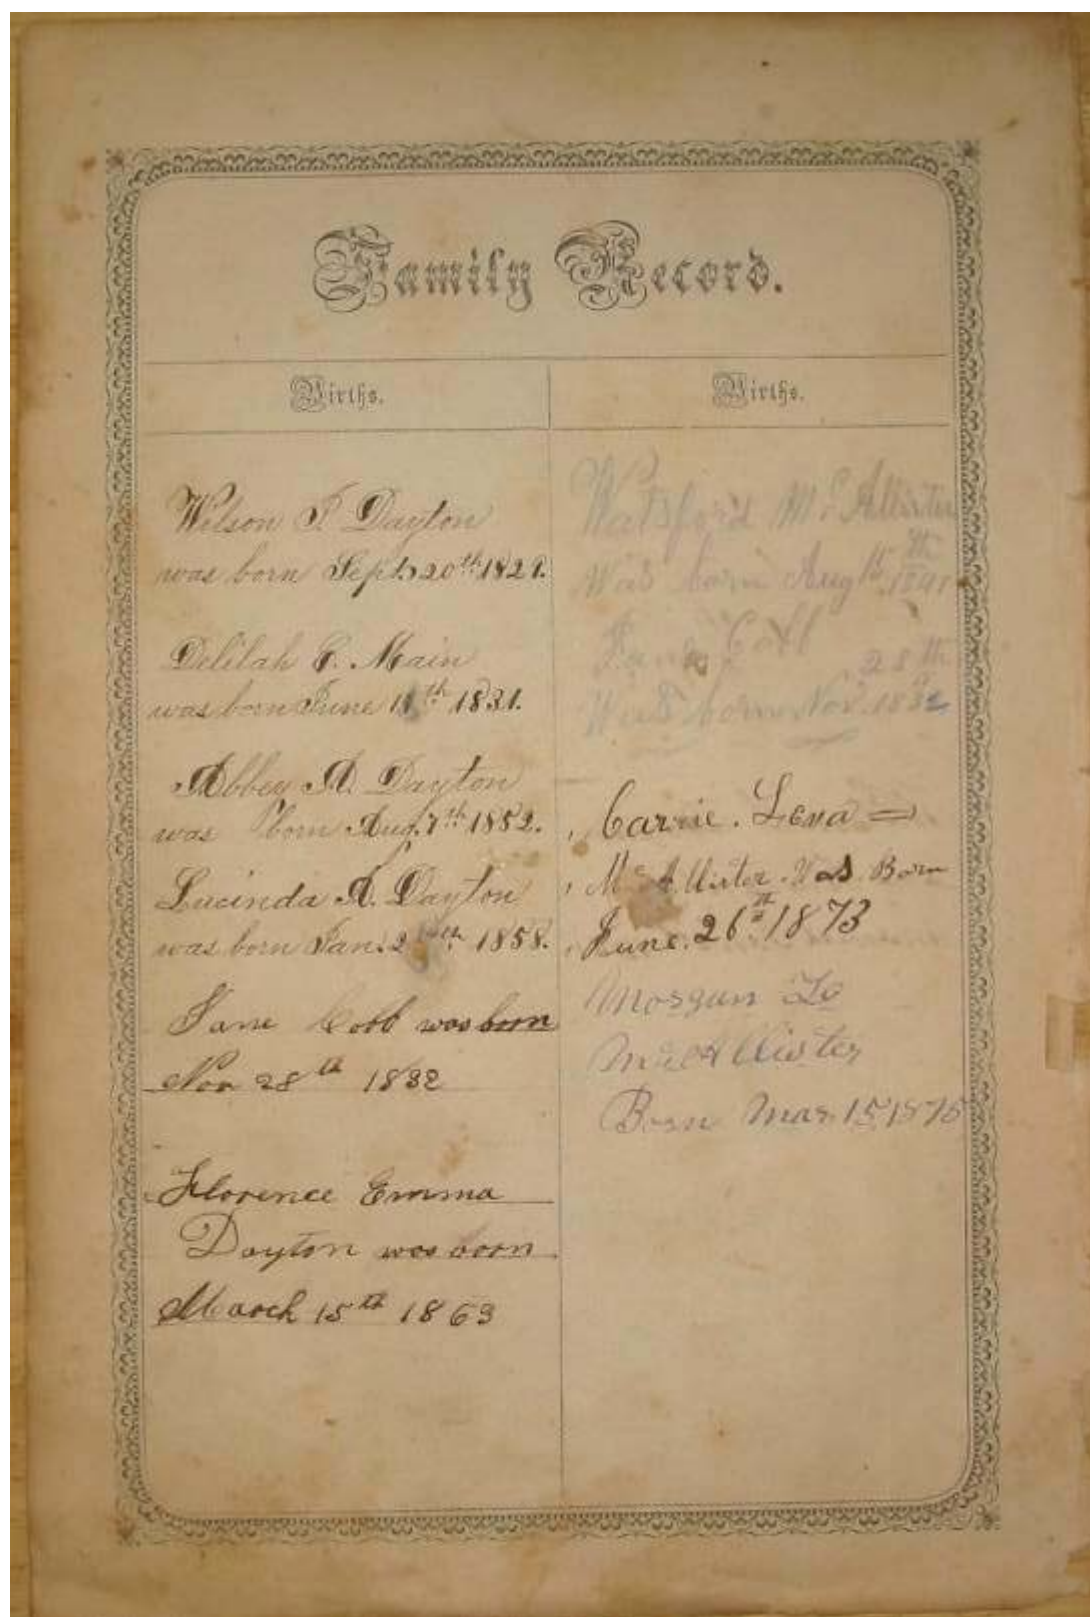 Family Record.
Births.
Wilson P. Dayton
was born Sept. 20th 1829.
Delilah C. Main
was born June 11th 1831.
Abbey A. Dayton
was born Aug. 7th 1852.
Lucinda A. Dayton
was born Jan. 1858.
Jane Cobb was born
Nov 28th 1832
Florence Emma
Dayton was born
March 15th 1863
Births.
Watsford Mc Allister
Was born Aug 15th 1841
Jane Cobb
28th
Was born Nov. 1832
Carrie. Lena =
Mc Allister. Was. Born
June. 26th 1873
Morgan Le
McAllister
Born Mar 15 1875